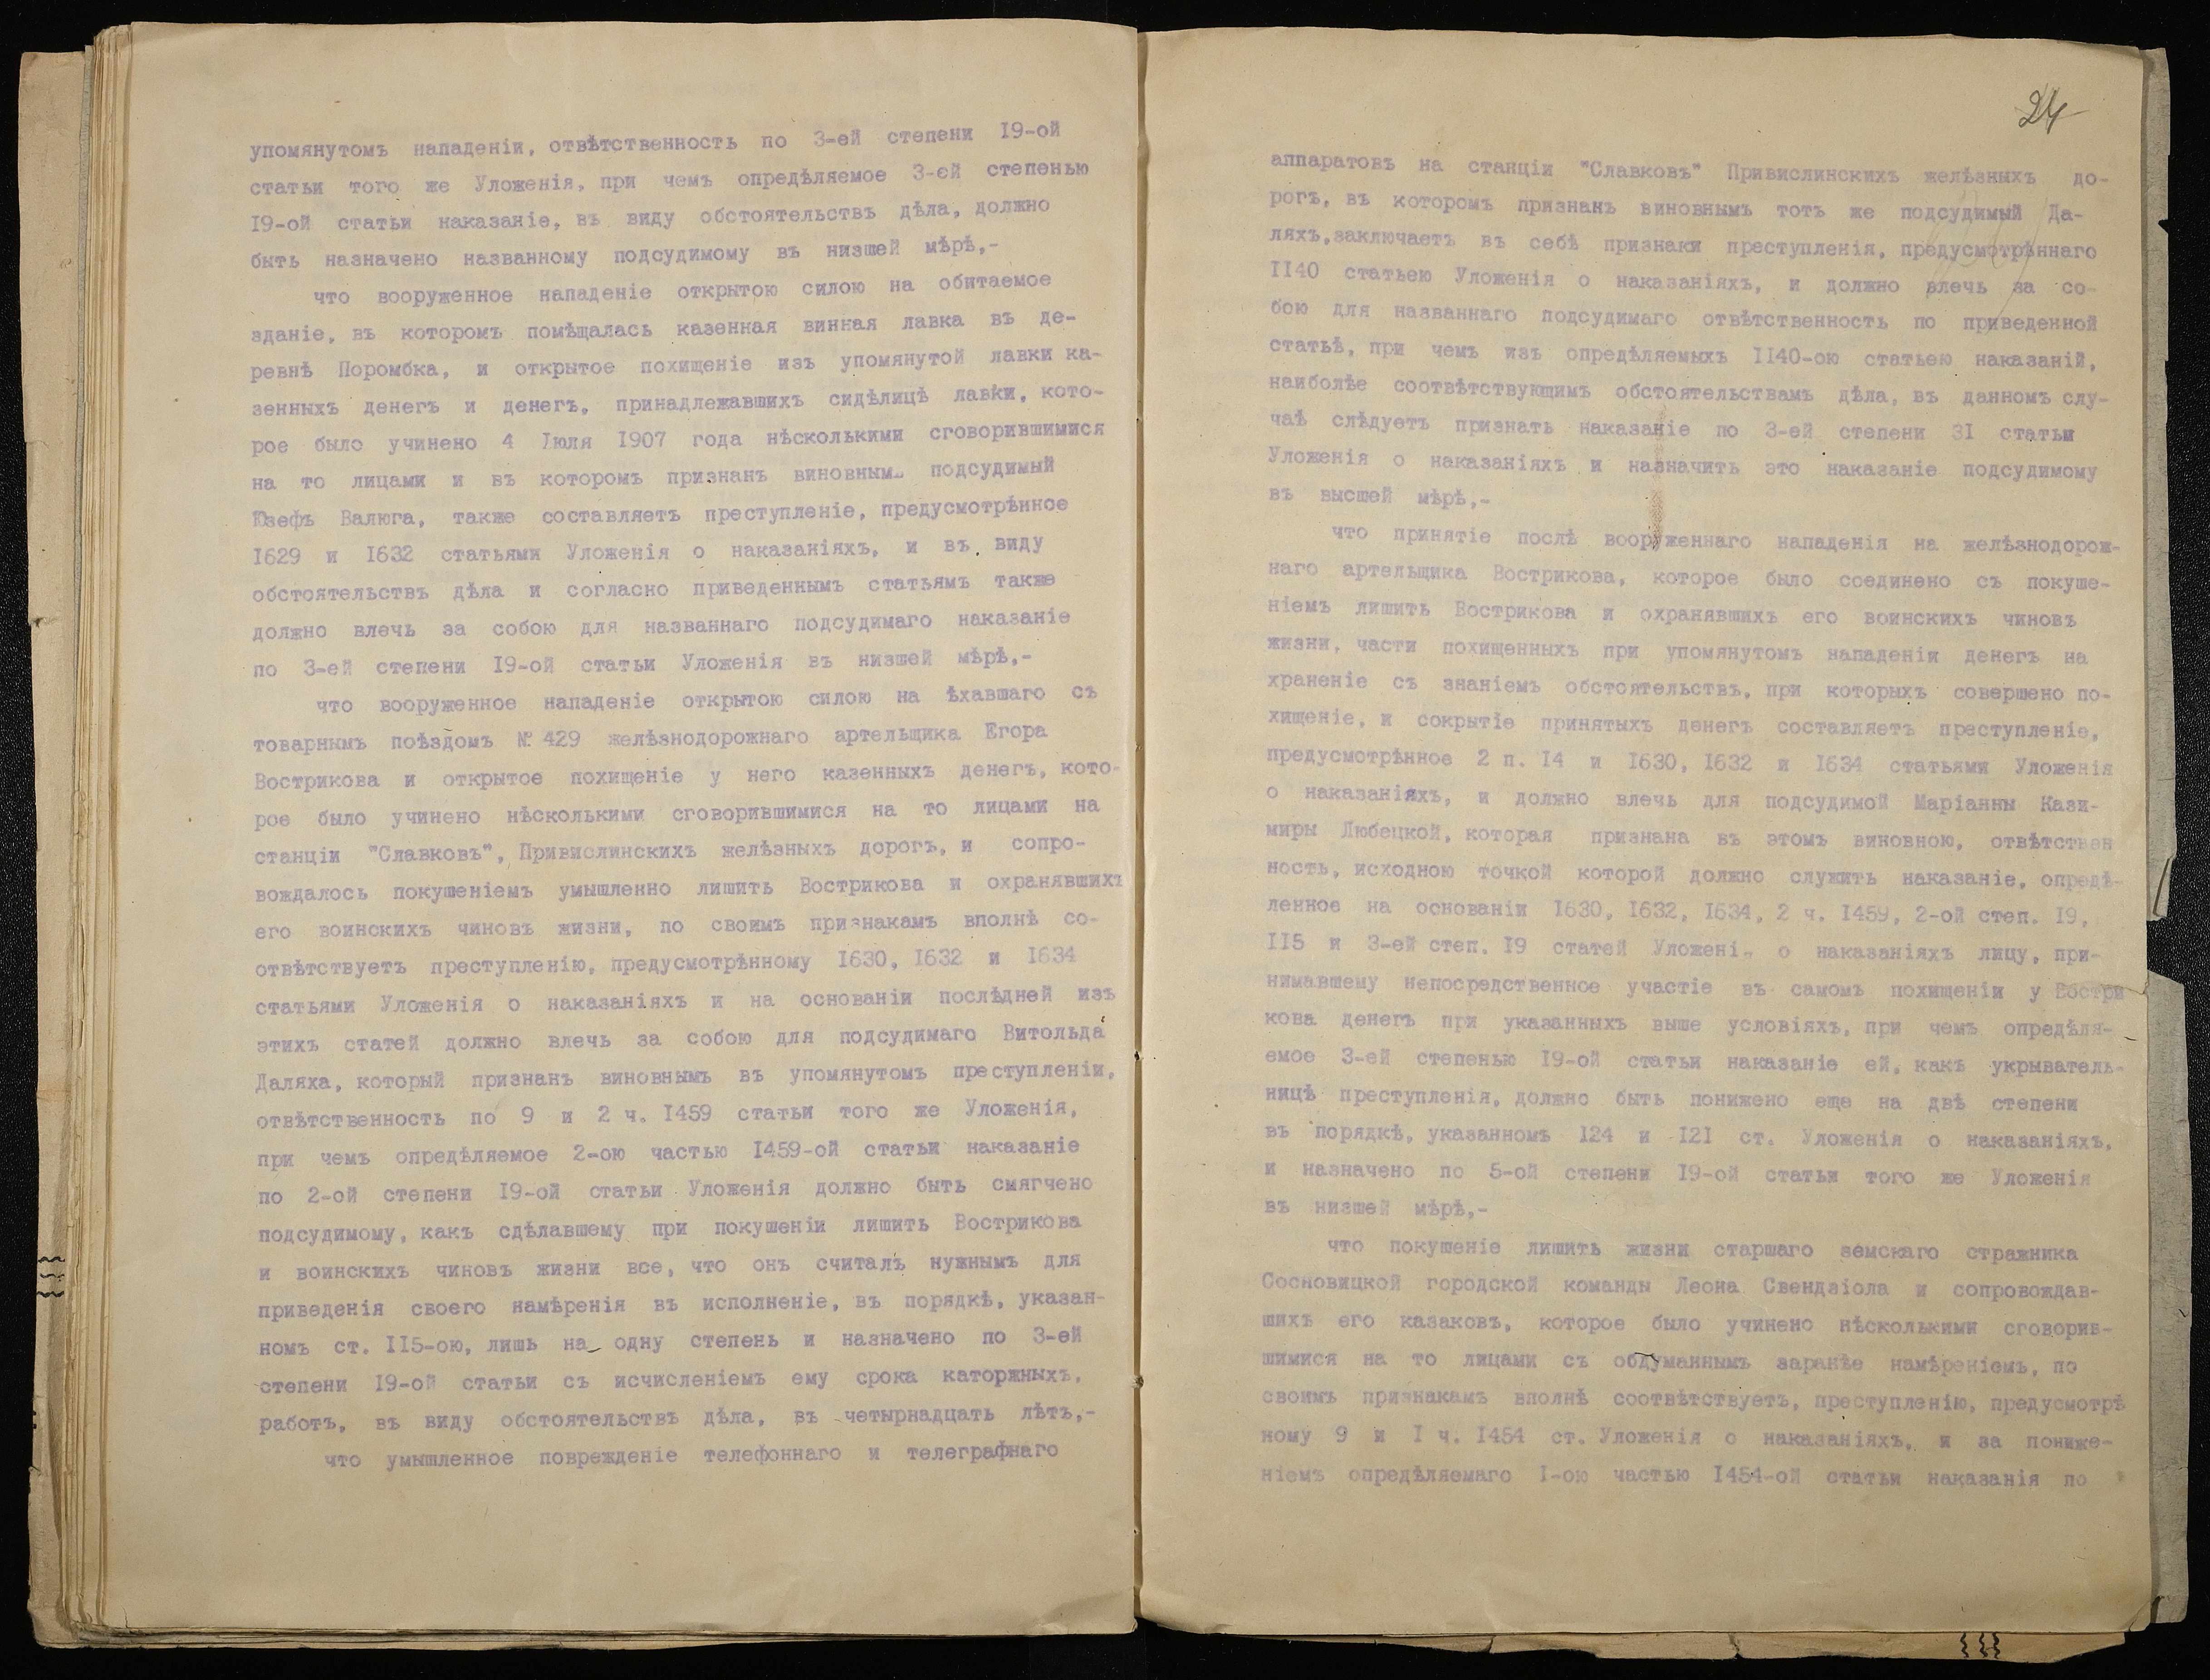 упомянутомъ нападеніи, отвѣтственность по 3-ей степени I9-ой
статьи того же Уложенія, при чемъ опредѣляемое 3-ей степенью
I9-ой статьи наказаніе, въ виду обстоятельствъ дѣла, должно
быть назначено названному подсудимому въ низшей мѣрѣ,-
что вооруженное нападеніе открытою силою на обитаемое
зданіе, въ которомъ помѣщалась казенная винная лавка въ де-
ревнѣ Поромбка, и открытое похищеніе изъ упомянутой лавки ка-
зенныхъ денегъ и денегъ, принадлежавшихъ сидѣлицѣ лавки, кото-
рое было учинено 4 Іюля I907 года нѣсколькими сговорившимися
на то лицами и въ которомъ признанъ виновным подсудимый
Юзефъ Валюга, также составляетъ преступленіе, предусмотрѣнное
I629 и I632 статьями Уложенія о наказаніяхъ, и въ виду
обстоятельствъ дѣла и согласно приведеннымъ статьямъ также
должно влечь за собою для названнаго подсудимаго наказаніе
по 3-ей степени I9-ой статьи Уложенія въ низшей мѣрѣ,-
что вооруженное нападеніе открытою силою на ѣхавшаго съ
товарнымъ поѣздомъ № 429 желѣзнодорожнаго артельщика Егора
Вострикова и открытое похищеніе у него казенныхъ денегъ, кото-
рое было учинено нѣсколькими сговорившимися на то лицами на
станціи "Славковъ", Привислинскихъ желѣзныхъ дорогъ, и сопро-
вождалось покушеніемъ умышленно лишить Вострикова и охранявшихъ
его воинскихъ чиновъ жизни, по своимъ признакамъ вполнѣ со-
отвѣтствуетъ преступленію, предусмотрѣнному I630, I632 и I634
статьями Уложенія о наказаніяхъ и на основаніи послѣдней изъ
этихъ статей должно влечь за собою для подсудимаго Витольда
Даляха, который признанъ виновнымъ въ упомянутомъ преступленіи,
отвѣтственность по 9 и 2 ч. I459 статьи того же Уложенія,
при чемъ опредѣляемое 2-ою частью I459-ой статьи наказаніе
по 2-ой степени I9-ой статьи Уложенія должно быть смягчено
подсудимому, какъ сдѣлавшему при покушеніи лишить Вострикова
и воинскихъ чиновъ жизни все, что онъ считалъ нужнымъ для
приведенія своего намѣренія въ исполненіе, въ порядкѣ, указан-
номъ ст. II5-ою, лишь на одну степень и назначено по 3-ей
степени I9-ой статьи съ исчисленіемъ ему срока каторжныхъ,
работъ, въ виду обстоятельствъ дѣла, въ четырнадцать лѣтъ,-
что умышленное поврежденіе телефоннаго и телеграфнаго
24
аппаратовъ на станціи "Славковъ" Привислинскихъ желѣзныхъ до-
рогъ, въ которомъ признанъ виновнымъ тотъ же подсудимый Да-
ляхъ, заключаетъ въ себѣ признаки преступленія, предусмотрѣннаго
II40 статьею Уложенія о наказаніяхъ, и должно влечь за со-
бою для названнаго подсудимаго отвѣтственность по приведенной
статьѣ, при чемъ изъ опредѣляемыхъ II40-ою статьею наказаній,
наиболѣе соотвѣтствующимъ обстоятельствамъ дѣла, въ данномъ слу-
чаѣ слѣдуетъ признать наказаніе по 3-ей степени 3I статьи
Уложенія о наказаніяхъ и назначить это наказаніе подсудимому
въ высшей мѣрѣ,-
что принятіе послѣ вооруженнаго нападенія на желѣзнодорож-
наго артельщика Вострикова, которое было соединено съ покуше-
ніемъ лишить Вострикова и охранявшихъ его воинскихъ чиновъ
жизни, части похищенныхъ при упомянутомъ нападеніи денегъ на
храненіе съ знаніемъ обстоятельствъ, при которыхъ совершено по-
хищеніе, и сокрытіе принятыхъ денегъ составляетъ преступленіе,
предусмотрѣнное 2 п. I4 и I630, I632 и I634 статьями Уложенія
о наказаніяхъ, и должно влечь для подсудимой Маріанны Кази-
миры Любецкой, которая признана въ этомъ виновною, отвѣтствен
ность, исходною точкой которой должно служить наказаніе, опредѣ-
ленное на основаніи I630, I632, I634, 2 ч. I459, 2-ой степ. I9,
II5 и 3-ей степ. I9 статей Уложені о наказаніяхъ лицу, при-
нимавшему непосредственное участіе въ самомъ похищеніи у Востри
кова денегъ при указанныхъ выше условіяхъ, при чемъ опредѣля-
емое 3-ей степенью I9-ой статьи наказаніе ей, какъ укрыватель-
ницѣ преступленія, должно быть понижено еще на двѣ степени
въ порядкѣ, указанномъ I24 и I2I ст. Уложенія о наказаніяхъ,
и назначено по 5-ой степени I9-ой статьи того же Уложенія
въ низшей мѣрѣ,-
что покушеніе лишить жизни старшаго земскаго стражника
Сосновицкой городской команды Леона Свендзіола и сопровождав-
шихъ его казаковъ, которое было учинено нѣсколькими сговорив-
шимися на то лицами съ обдуманнымъ заранѣе намѣреніемъ, по
своимъ признакамъ вполнѣ соотвѣтствуетъ, преступленію, предусмотрѣ
ному 9 и I ч. I454 ст. Уложенія о наказаніяхъ, и за пониже-
ніемъ опредѣляемаго I-ою частью I454-ой статьи наказанія по